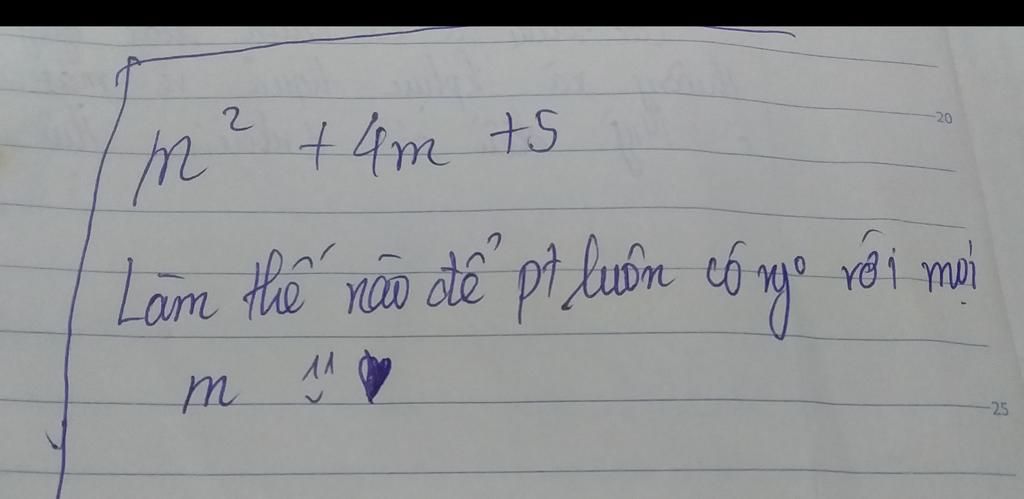 20
m² + 4m + 5
Làm thế nào để pt luôn có ng⁰ với mọi
m
25